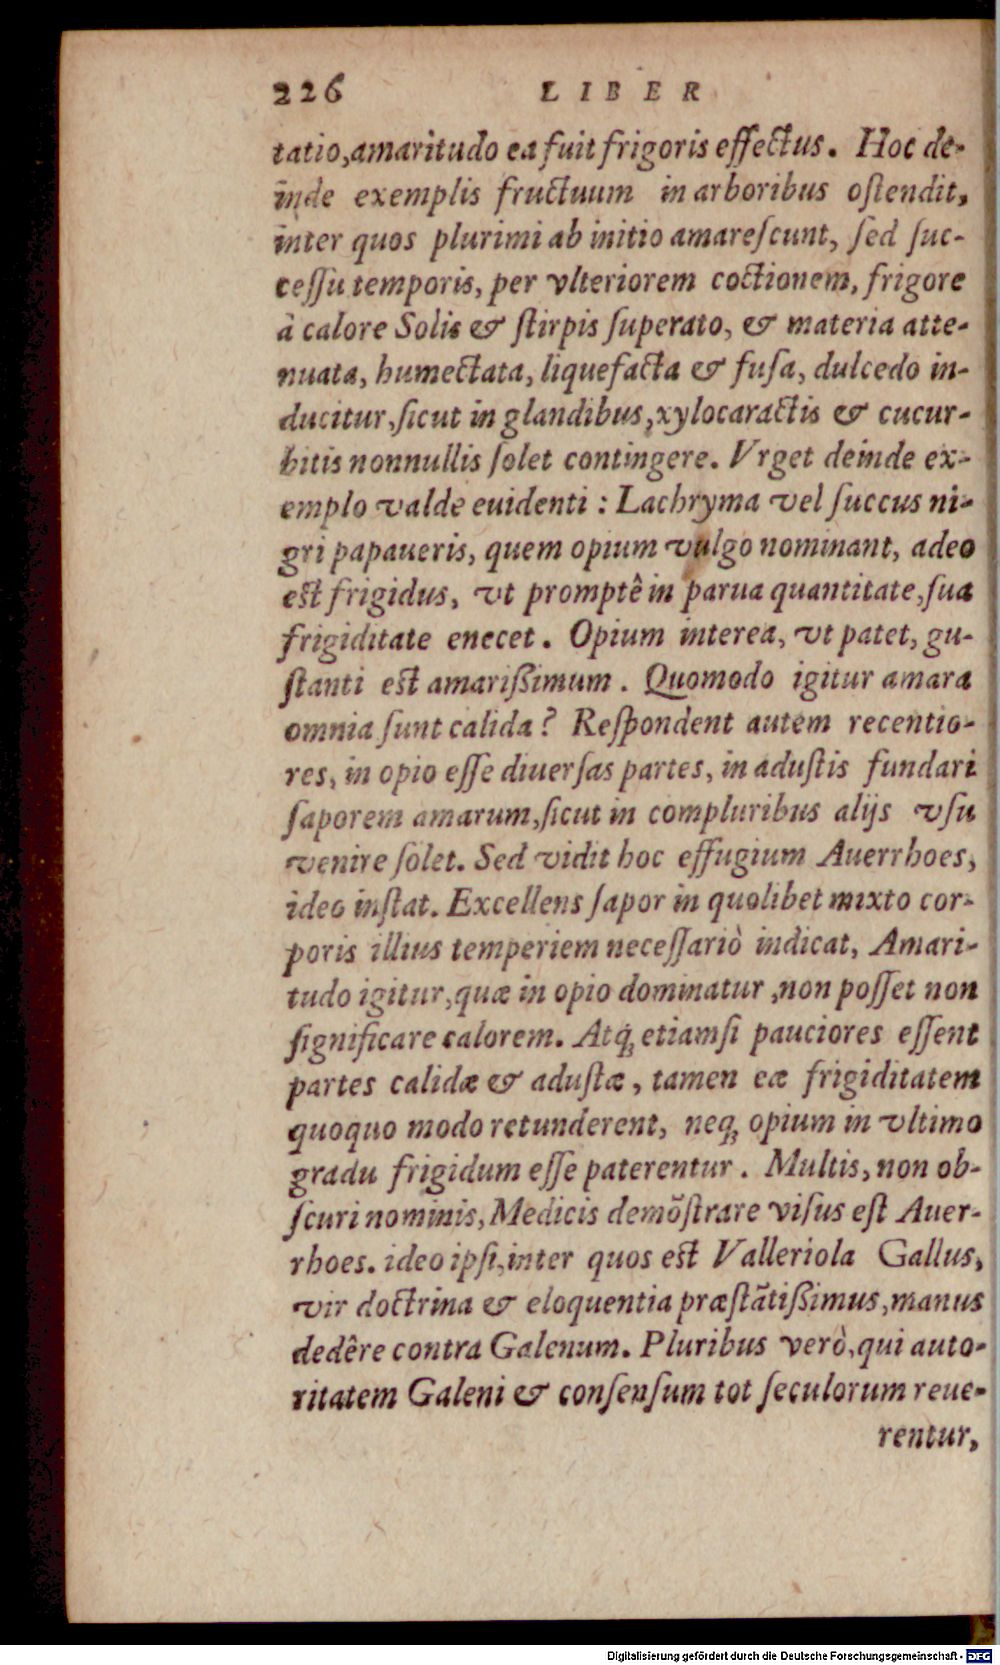 226 LIBER
tatio, amaritudo ea fuit frigoris effectus. Hoc de-
inde exemplis fructuum in arboribus ostendit,
inter quos plurimi ab initio amarescunt, sed suc-
cessu temporis, per vlteriorem coctionem, frigore
à calore Solis & stirpis superato, & materia atte-
nuata, humectata, liquefacta & fusa, dulcedo in-
ducitur, sicut in glandibus, xylocaractis & cucur-
bitis nonnullis solet contingere. Vrget deinde ex-
emplo valde euidenti : Lachryma vel succus ni-
gri papaueris, quem opium vulgo nominant, adeo
est frigidus, vt promptê in parua quantitate, sua
frigiditate enecet. Opium interea, vt patet, gu-
stanti est amarißimum. Quomodo igitur amara
omnia sunt calida? Respondent autem recentio-
res, in opio esse diuersas partes, in adustis fundari
saporem amarum, sicut in compluribus alijs vsu
venire solet. Sed vidit hoc effugium Auerrhoes,
ideo instat. Excellens sapor in quolibet mixto cor-
poris illius temperiem necessariò indicat, Amari-
tudo igitur, quæ in opio dominatur, non posset non
significare calorem. Atq́ꝫ etiamsi pauciores essent
partes calidæ & adustæ, tamen eæ frigiditatem
quoquo modo retunderent, neqꝫ opium in vltimo
gradu frigidum esse paterentur. Multis, non ob-
scuri nominis, Medicis demõstrare visus est Auer-
rhoes. ideo ipsi, inter quos est Valleriola Gallus,
vir doctrina & eloquentia præstãtißimus, manus
dedêre contra Galenum. Pluribus verò, qui auto-
ritatem Galeni & consensum tot seculorum reue-
rentur,
Digitalisierung gefördert durch die Deutsche Forschungsgemeinschaft - DFG